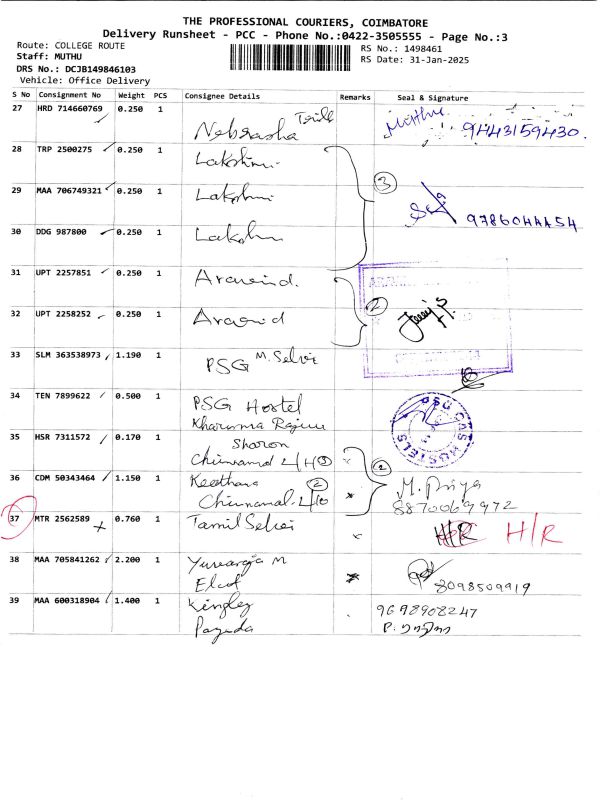 THE PROFESSIONAL COURIERS, COIMBATORE
Delivery Runsheet - PCC - Phone No.:0422-3505555 - Page No.:3
Route: COLLEGE ROUTE
Staff: MUTHU
DRS No.: DCJB149846103
Vehicle: Office Delivery
RS No.: 1498461
RS Date: 31-Jan-2025
S No Consignment No Weight PCS Consignee Details Remarks Seal & Signature
27 HRD 714660769 0.250 1 Nebrasha 9443159430
28 TRP 2500275 0.250 1 Lakshmi 3
29 MAA 706749321 0.250 1 Lakshmi
30 DDG 987800 0.250 1 Lakshmi 9786044454
31 UPT 2257851 0.250 1 Aravind.
32 UPT 2258252 0.250 1 Aravind 2
33 SLM 363538973 1.190 1 PSG M. Selvi
34 TEN 7899622 0.500 1 PSG Hostel
PSG CAS HOSTELS
35 HSR 7311572 0.170 1 Sharon
36 CDM 50343464 1.150 1 2 M. Priya
8870069972
37 MTR 2562589 0.760 1 Tamil Selvi H/R H/R
38 MAA 705841262 2.200 1 M
8098509919
39 MAA 600318904 1.400 1 Kingley 9698908247